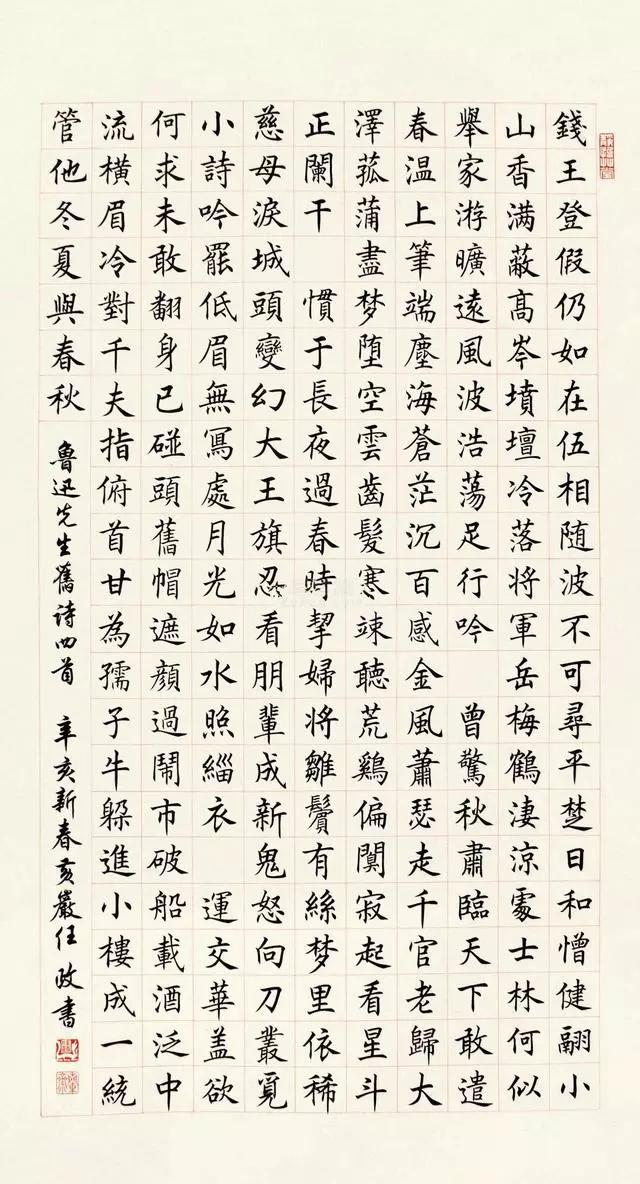 錢王登假仍如在伍相随波不可尋平楚日和憎健翮小
山香满蔽髙岑墳壇冷落将軍岳梅鶴凄涼處士林何似
舉家游曠遠風波浩蕩足行吟 曾驚秋肅臨天下敢遣
春温上筆端塵海蒼茫沉百感金風蕭瑟走千官老歸大
澤菰蒲盡梦堕空雲齒髮寒竦聽荒鷄偏闃寂起看星斗
正闌干 慣于長夜過春時挈婦将雛鬢有絲梦里依稀
慈母淚城頭變幻大王旗忍看朋輩成新鬼怒向刀叢覓
小詩吟罷低眉無冩處月光如水照緇衣 運交華盖欲
何求未敢翻身已碰頭舊帽遮顔過鬧市破船載酒泛中
流横眉冷對千夫指俯首甘為孺子牛躲進小樓成一統
管他冬夏與春秋
魯迅先生舊诗四首 辛亥新春黄巖任政書